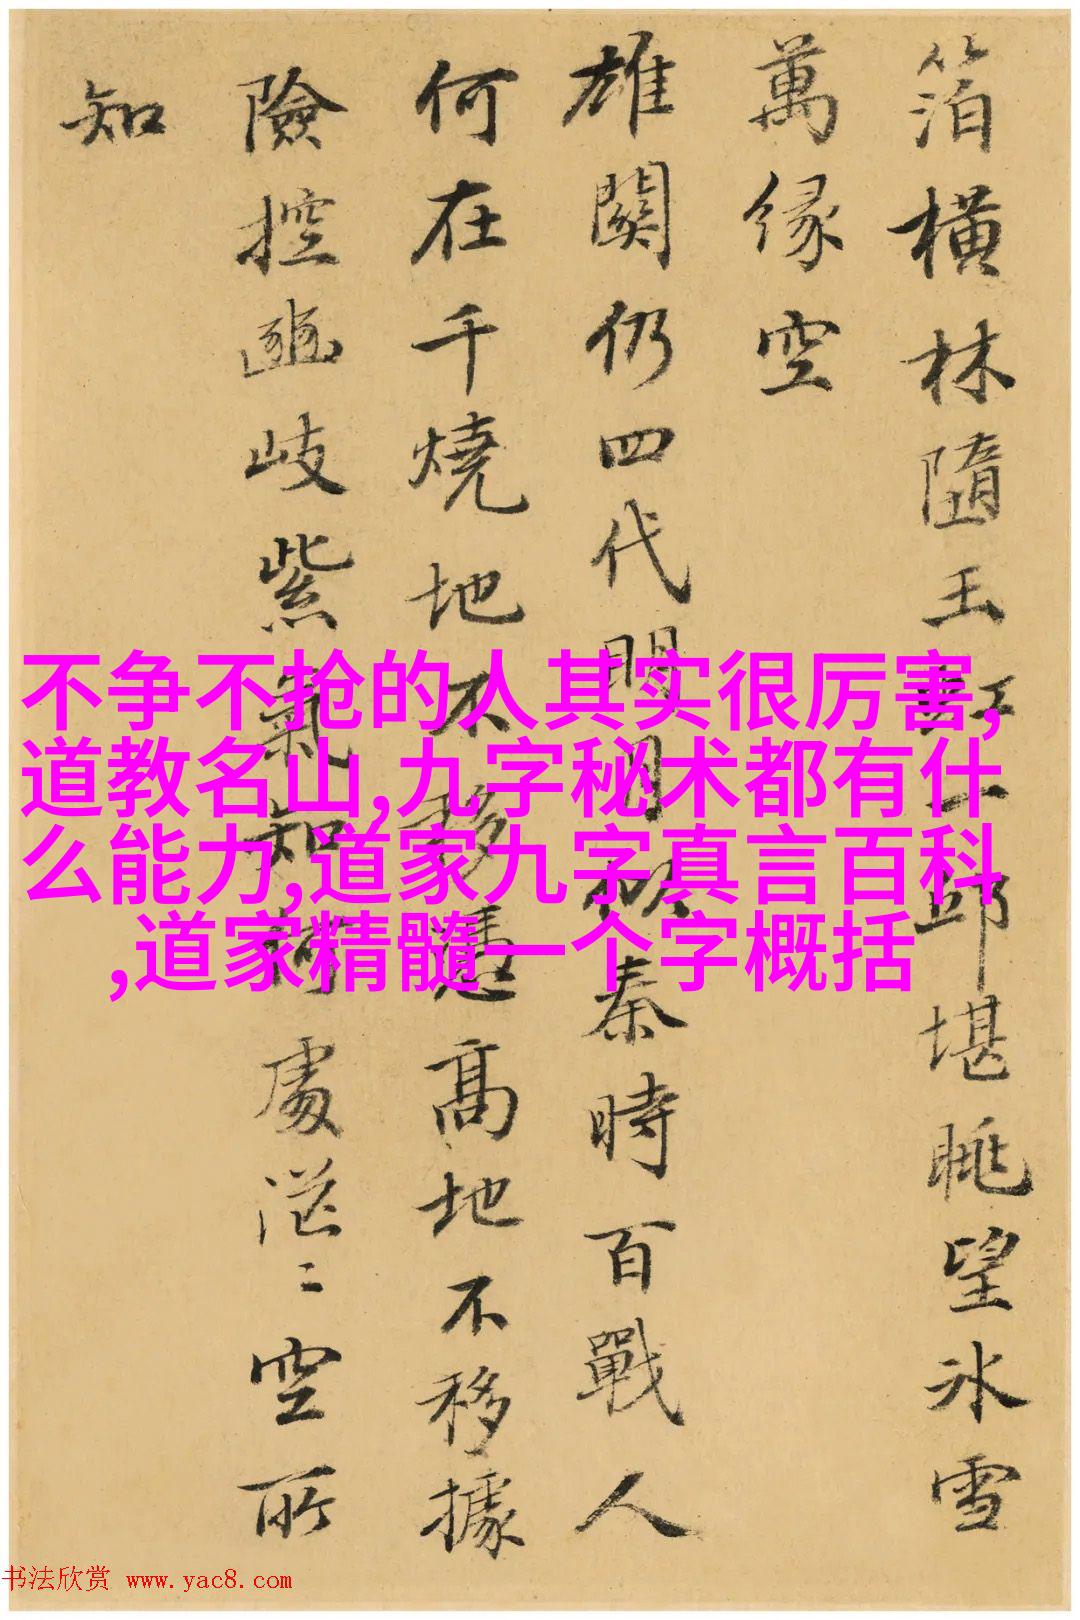 箔横林隨玉虹一邱堪眺望冰雪
萬緣空
雄関仍四代明月秦時百戰人
何在千燒地不移憑高地不移據
險控豳岐紫氣知何處茫〻空所
知
不争不抢的人其实很厉害,
道教名山,九字秘术都有什
么能力,道家九字真言百科
,道家精髓一个字概括
书法欣赏 www.yac8.com